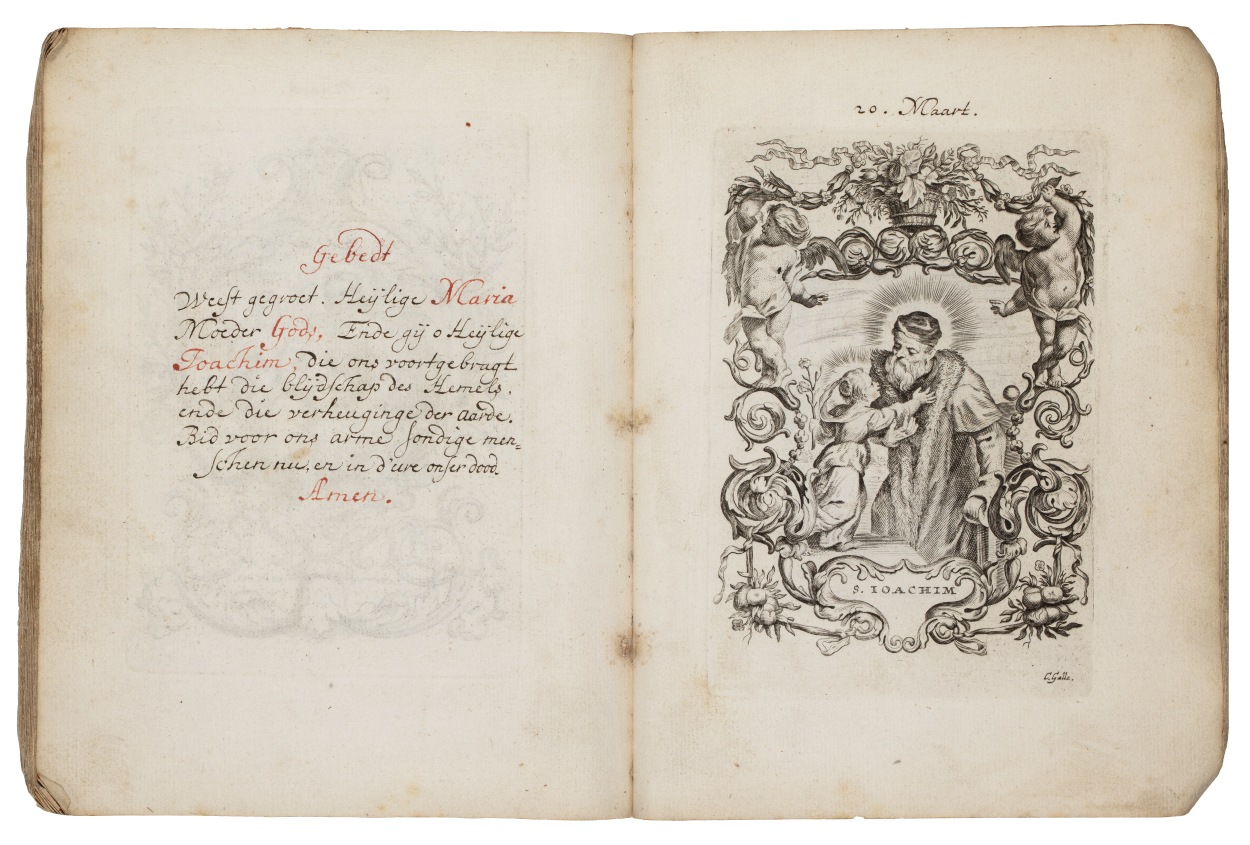 Gebedt
Weest gegroet. Heijlige Maria
Moeder Gods, Ende gij o Heijlige
Joachim, die ons voortgebragt
hebt die blijdschap des Hemels,
ende die verheuginge der aarde.
Bid voor ons arme sondige men=
schen nu, en in d'ure onser dood.
Amen.
20. Maart.
S. IOACHIM
C. Galle.